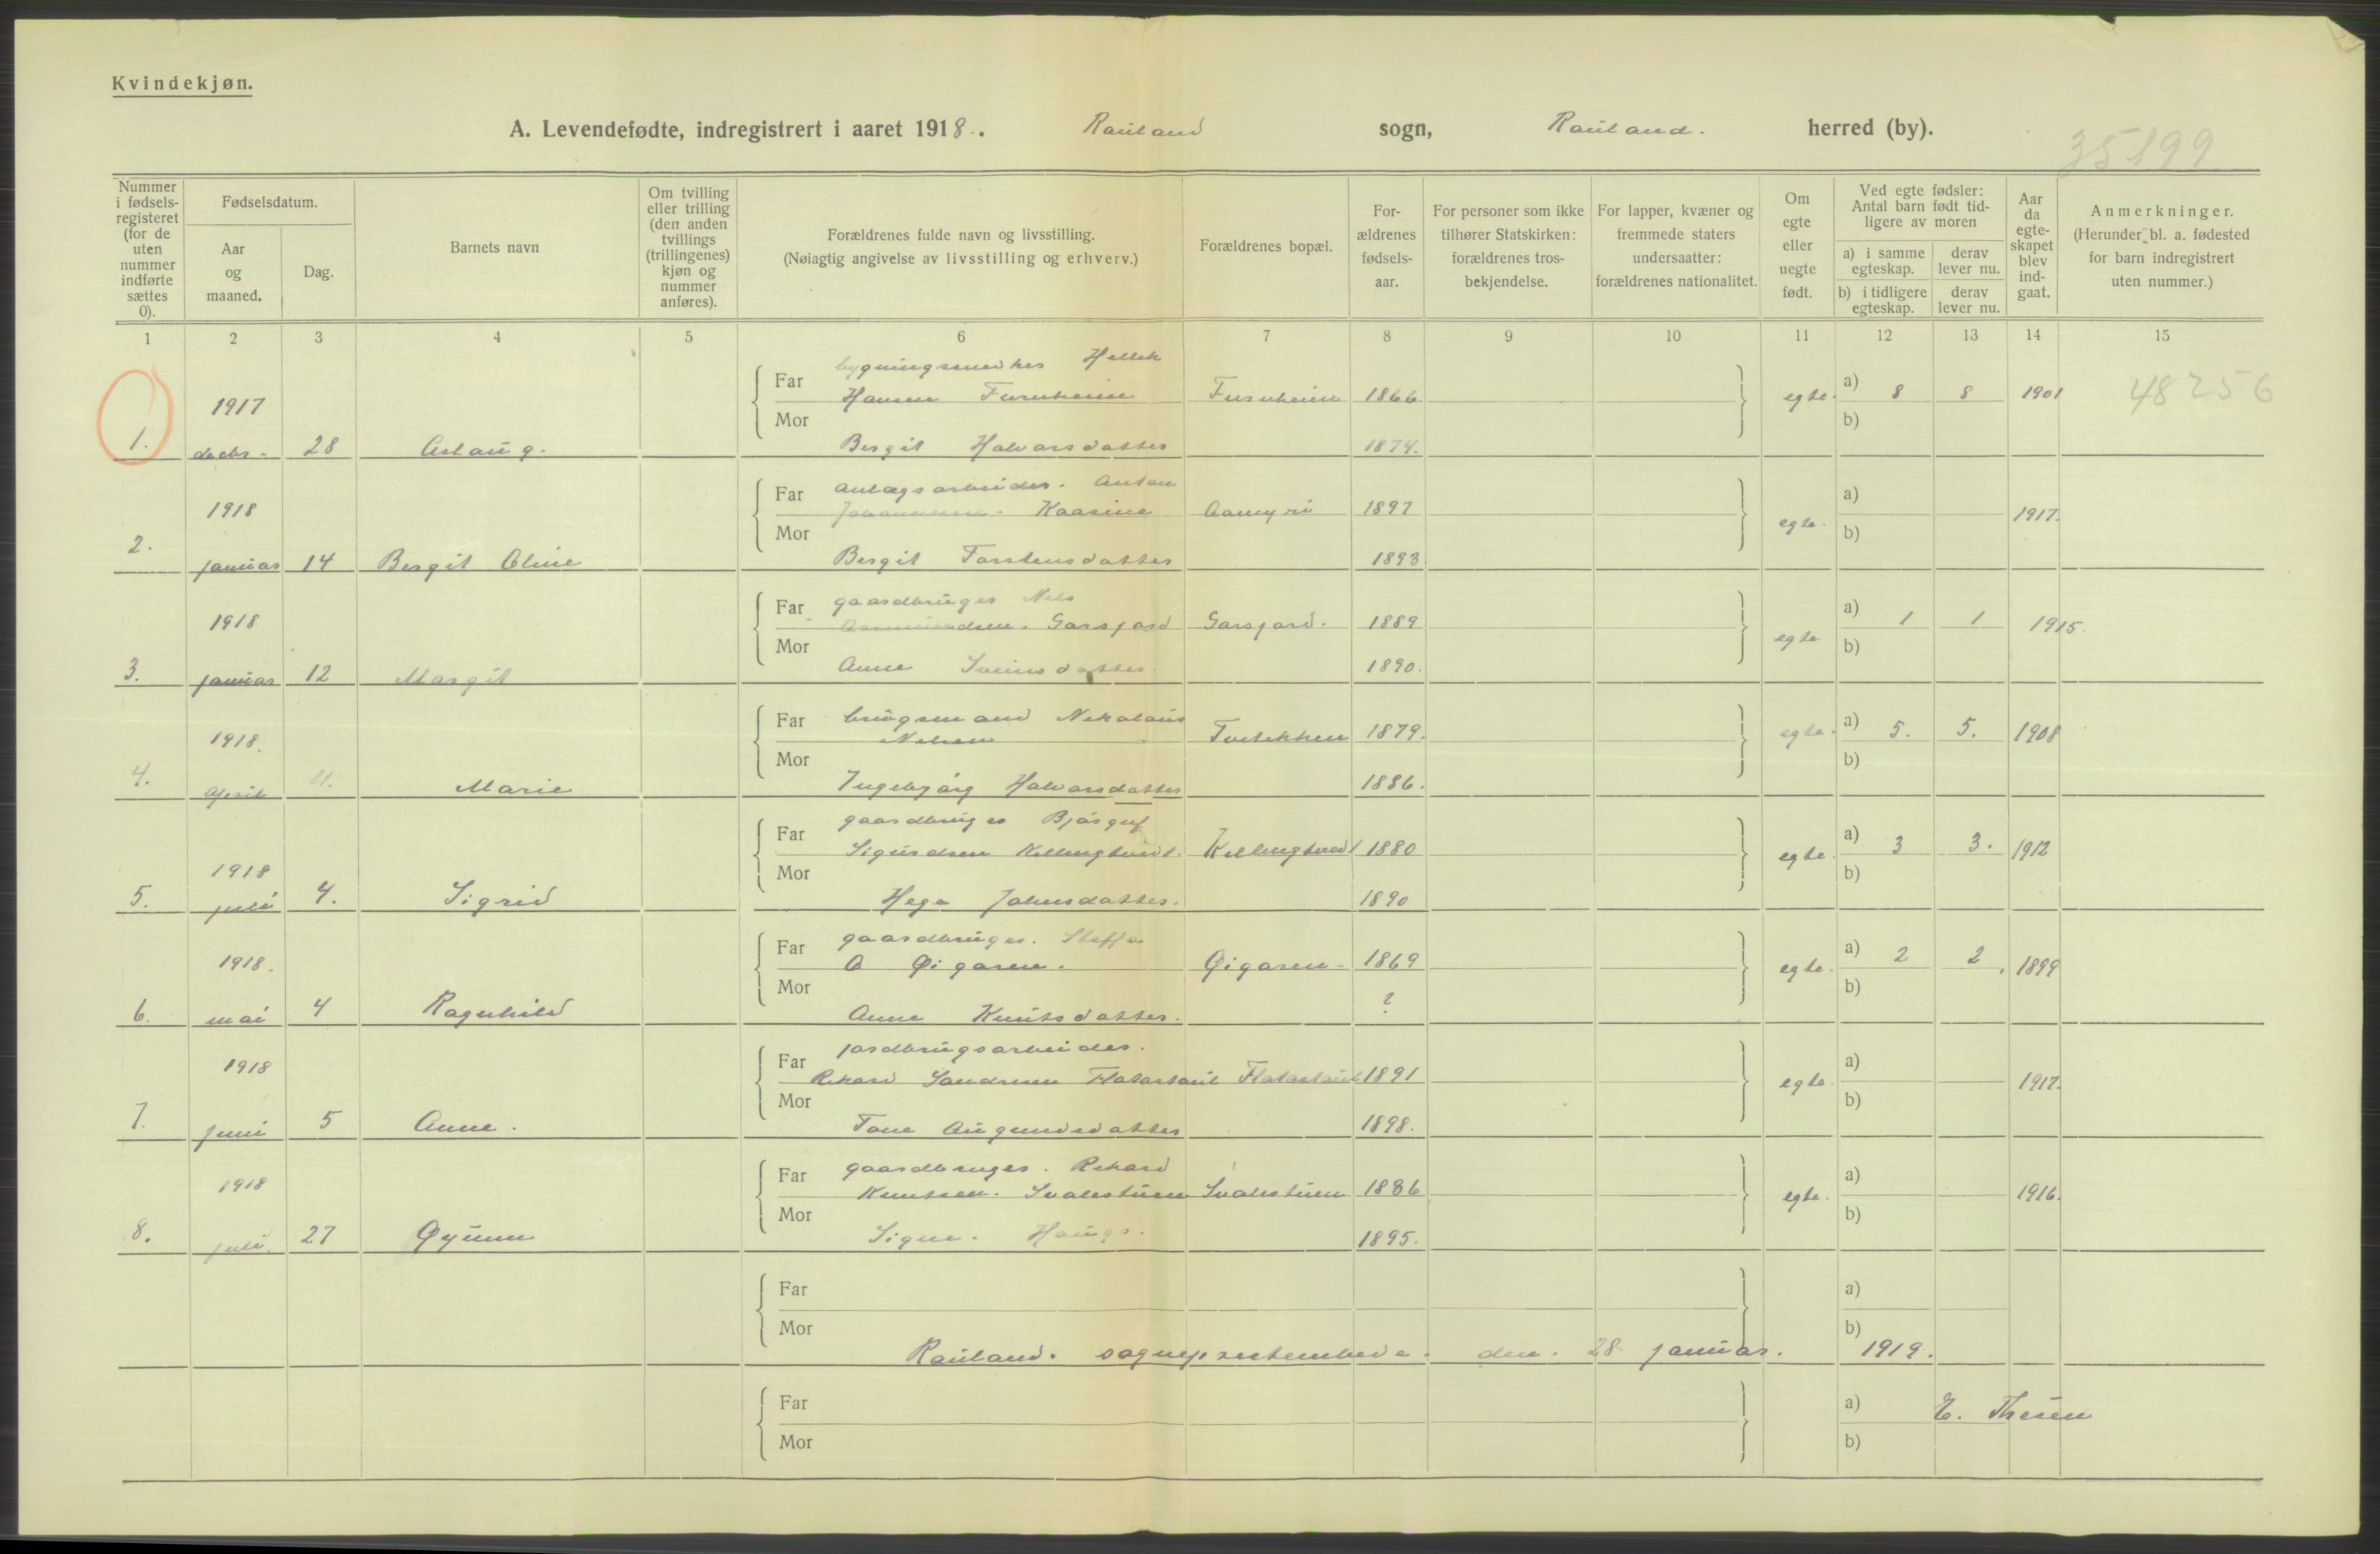 Kvindekjøn.
A. Levendefødte, indregistrert i aaret 1918. Rauland sogn, Rauland. herred (by).
35199
Nummer i fødsels-registeret (for de uten nummer indførte sættes 0).
Fødselsdatum.
Aar og maaned.
Dag.
Barnets navn
Om tvilling eller trilling (den anden tvillings (trillingenes) kjøn og nummer anføres).
Forældrenes fulde navn og livsstilling.
(Nøiagtig angivelse av livsstilling og erhverv.)
Forældrenes bopæl.
For-ældrenes fødsels-aar.
For personer som ikke tilhører Statskirken: forældrenes tros-bekjendelse.
For lapper, kvæner og fremmede staters undersaatter: forældrenes nationalitet.
Om egte eller uegte født.
Ved egte fødsler: Antal barn født tid-ligere av moren
a) i samme egteskap.
derav lever nu.
b) i tidligere egteskap.
derav lever nu.
Aar da egte-skapet blev ind-gaat.
Anmerkninger.
(Herunder bl. a. fødested for barn indregistrert uten nummer.)
1 2 3 4 5 6 7 8 9 10 11 12 13 14 15
bygningssnedker Hellek
1917 Far Hansen Furuheim Furuheim 1866. egte. a) 8 8 1901 48256
Mor b)
1. decbr. 28 Aslaug. Bergit Halvorsdatter 1874.
Far anlægsarbeider. Anton a)
1918 Johannesen. Kaasine Aamyri 1897 egte. 1917.
Mor b)
2. januar 14 Bergit Oline Bergit Torstensdatter 1893
Far gaardbruger Nils a) 1 1
1918 Garsjord Garsjord. 1889 egte 1915.
Mor b)
3. januar 12 Margit Anne Sveinsdatter. 1890.
Far brugsmand Nikolaus a) 5. 5. 1908
1918. Nilsen 1879. egte.
Mor b)
4. April 11. Marie Ingebjørg Halvorsdatter 1886.
gaardbruger Bjørgulf
1918 Far Sigurdsen Killingtveit. Killingtveit 1880 egte a) 3 3. 1912
Mor b)
5. juli 4. Sigrid Hege Johnsdatter. 1890
gaardbruger. Steffa
1918. Far O Øigaren. Øigaren 1869 egte. a) 2 2 1899
Mor b)
6. mai 4 Ragnhild Anne Knutsdatter. ?
jordbrugsarbeider.
1918 Far Rikard Sondresen Flatastaul Flatastaul 1891 egte. a) 1917.
Mor b)
7. juni 5 Anne. Tone Augundsdatter 1898.
gaardbruger. Rikard
1918 Far Knutsen. Svalestuen Svalestuen 1886 egte. a) 1916.
Mor b)
8. juli. 27 Gyunn Signe. Haugs. 1895.
Far a)
Mor b)
Rauland. sogneprestembede. den. 28 januar. 1919.
Far a) E. Thesen
Mor b)